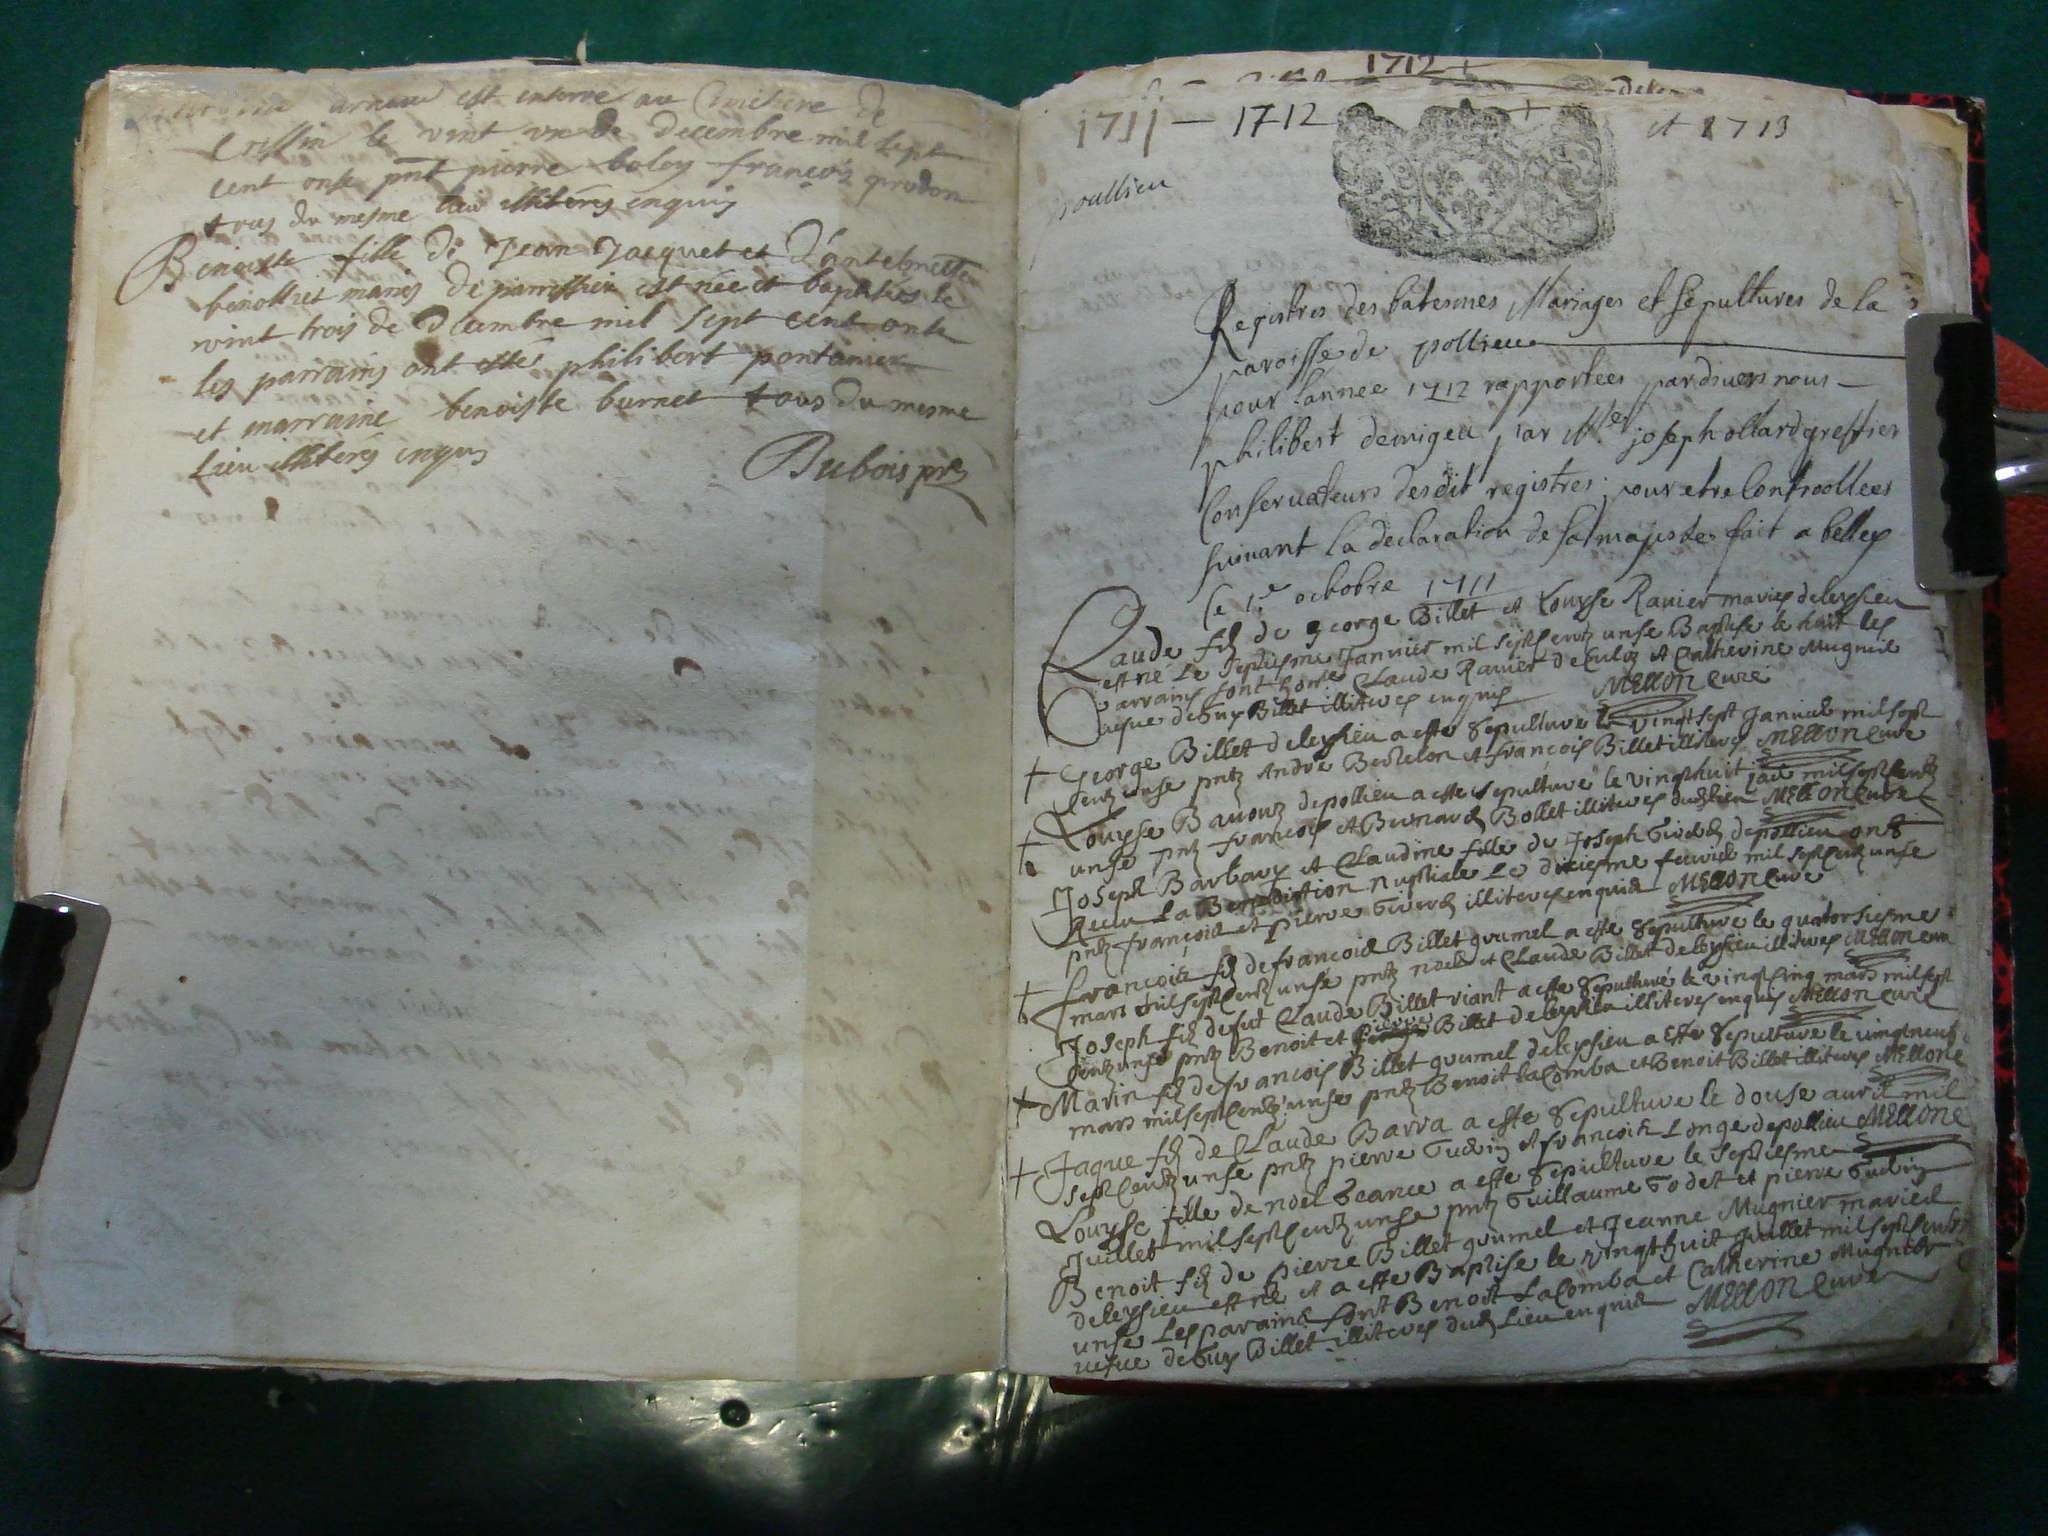 arneu est enterré au Cimistere de
Cressin le vint un de decembre mil sept
cent onse pnt pierre boley françois prudon
tous du mesme lieu illiterés enquis
Benoiste fille de Jean Jacquet et d'
benostret mariés de parrissieu est née et baptisés le
vint trois de decembre mil sept cent onse
les parrains ont esté philibert pontanier
et marraine benoiste burnet tous du mesme
Lieu illiterés enquis
Dubois pre
1712
1711 — 1712 et 1713
poullieu
Registres des batesmes Mariages et sepultures de la
paroisse de pollieu
pour lannee 1712 rapportées pardevers nous
philibert demigeu par Me joseph ollard greffier
Conservateurs desdit registres pour etre Controollees
suivant la declaration de sa majestes fait a belley
le 1re octobre 1711
Claude fz de george Billet et Louyse Ravier maries deleysieu
est né Le septiesme Jannier mil sept Centz unse Baptise le huit les
Parrains sont hone Claude Ravier de Culoz et Catherine Mugnié
vefue de Guy Billet illiteres enquis MELLON Curé
+ George Billet deleysieu a esté sepulturé le vingtsept Janniee mil sept
Centz unse pntz André Berthelon et françois Billet illiteres MELLON Curé
+ Louyse Bavouz depollieu a esté sepulturé le vingthuit jan mil sept Centz
unse pntz francois et Bernard Bollet illiteres dudt lieu MELLON Curé
Joseph Barbary et Claudine fille de Joseph Girerd depollieu ont
Receu La Benediction nuptiale Le dixiesme feurié mil sept Centz unse
pntz françois et pierre Girerd illiteres enquis MELLON Curé
+ françois fz de françois Billet goumel a esté sepulturé le quatorsiesme
mars mil sept Centz unse pntz noel et Claude Billet deleysieu illiteres MELLON Curé
Joseph fz defut Claude Billet viant a esté sepulturé le vingt Cinq mars mil sept
Centz unse pntz Benoit et pierre Billet deleysieu illiteres enquis MELLON Curé
+ Marin fz de françois Billet goumel deleysieu a esté sepulturé le vingtneuf
mars mil sept Centz unse pntz Benoit LaComba et Benoit Billet illiteres MELLON C
+ Jaque fz de Claude Barra a esté sepulturé le douse auril mil
sept Centz unse pntz pierre Gudin et françois Longe depollieu MELLON C
Louyse fille de noel Scance a esté sepulturé le septiesme
Juillet mil sept Centz unse pntz Guillaume Godet et pierre Gudin
Benoit fz de pierre Billet goumel et Jeanne Mugnier mariés
deleysieu est né et a esté Baptise le vingthuit Juillet mil sept Centz
unse Les parains sont Benoit LaComba et Catherine Mugnier
vefue de Guy Billet illiteres dudt Lieu enquis MELLON Curé